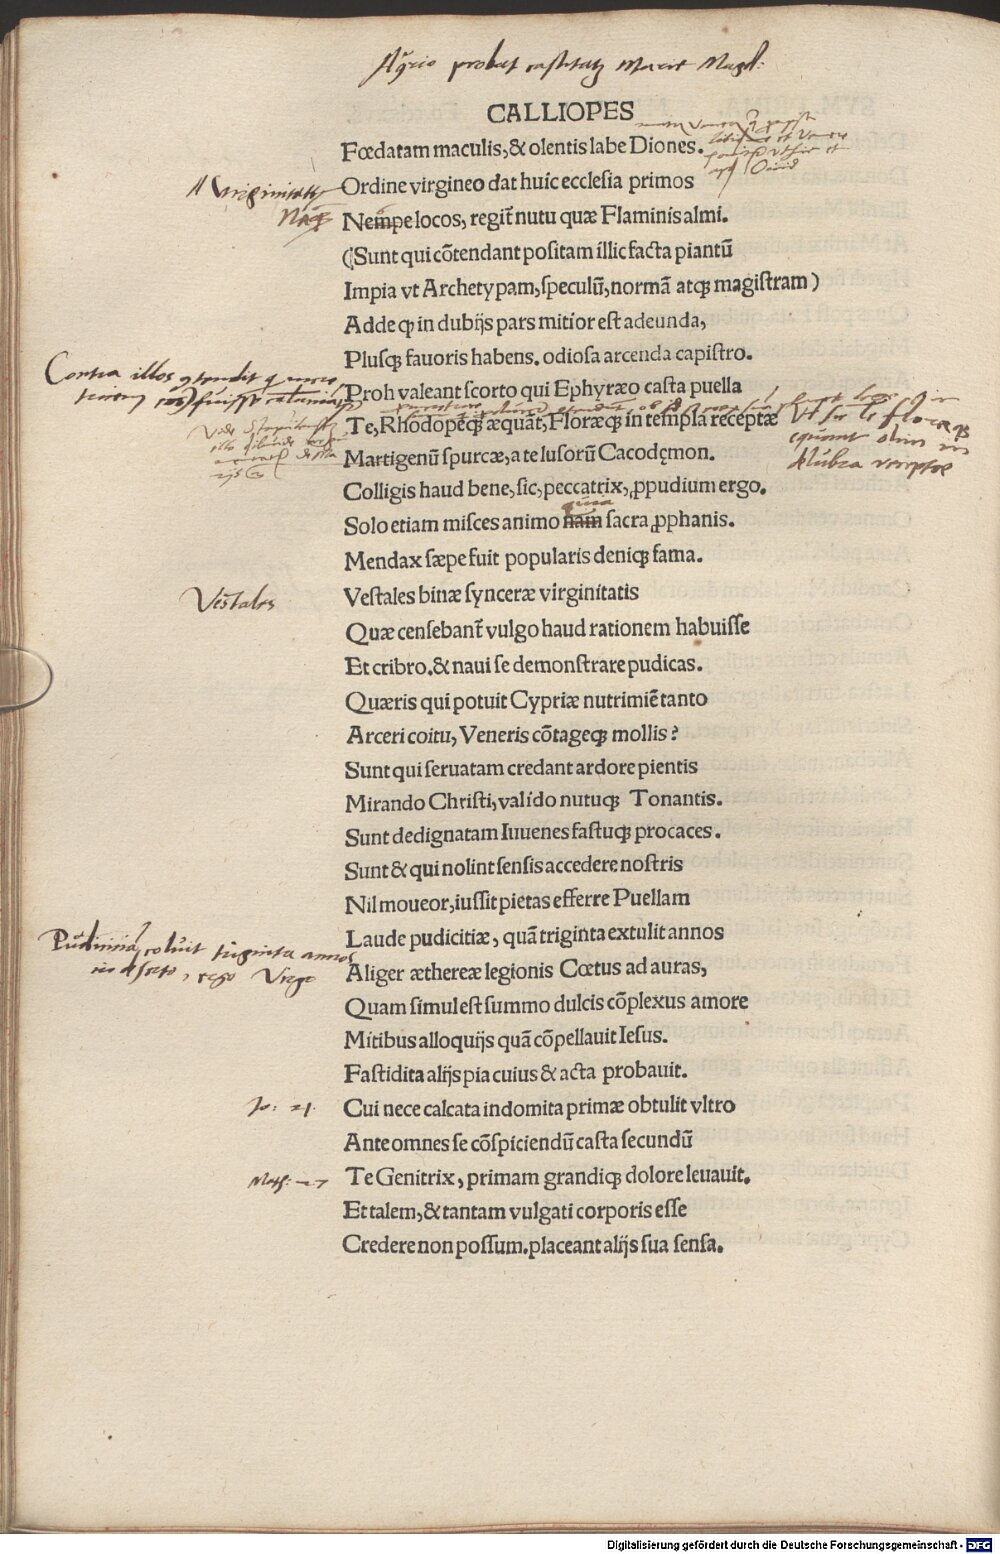 probat castitatem Marie Magd:
CALLIOPES
Fœdatam maculis, & olentis labe Diones.
Ordine virgineo dat huic ecclesia primos
Nempe locos, regit̃ nutu quæ Flaminis almi.
(Sunt qui cõtendant positam illic facta piantũ
Impia vt Archetypam, speculũ, normã atq́; magistram)
Adde ꝙ in dubijs pars mitior est adeunda,
Plusq́; fauoris habens. odiosa arcenda capistro.
Contra illos
Proh valeant scorto qui Ephyræo casta puella
Te, Rhodopeq́; æquãt, Floræq́; in templa receptæ
Vt te Floræq́;
equant olim in
delubra receptæ
Martigenũ spurcæ, a te lusorũ Cacodęmon.
Colligis haud bene, sic, peccatrix, ꝓpudium ergo.
quia
Solo etiam misces animo nam sacra ꝓphanis.
Mendax sæpe fuit popularis deniq́; fama.
Vestales
Vestales binæ synceræ virginitatis
Quæ censebant̃ vulgo haud rationem habuisse
Et cribro. & naui se demonstrare pudicas.
Quæris qui potuit Cypriæ nutrimiẽ tanto
Arceri coitu, Veneris cõtageq́; mollis?
Sunt qui seruatam credant ardore pientis
Mirando Christi, valido nutuq́; Tonantis.
Sunt dedignatam Iuuenes fastuq́; procaces.
Sunt & qui nolint sensis accedere nostris
Nil moueor, iussit pietas efferre Puellam
Laude pudicitiæ, quã triginta extulit annos
coluit triginta annos
ergo Virgo
Aliger æthereæ legionis Cœtus ad auras,
Quam simul est summo dulcis cõplexus amore
Mitibus alloquijs quã cõpellauit Iesus.
Fastidita alijs pia cuius & acta probauit.
Jo: 21.
Cui nece calcata indomita primæ obtulit vltro
Ante omnes se cõspiciendũ casta secundũ
Math: 27
Te Genitrix, primam grandiq́; dolore leuauit.
Et talem, & tantam vulgati corporis esse
Credere non possum. placeant alijs sua sensa.
Digitalisierung gefördert durch die Deutsche Forschungsgemeinschaft - DFG